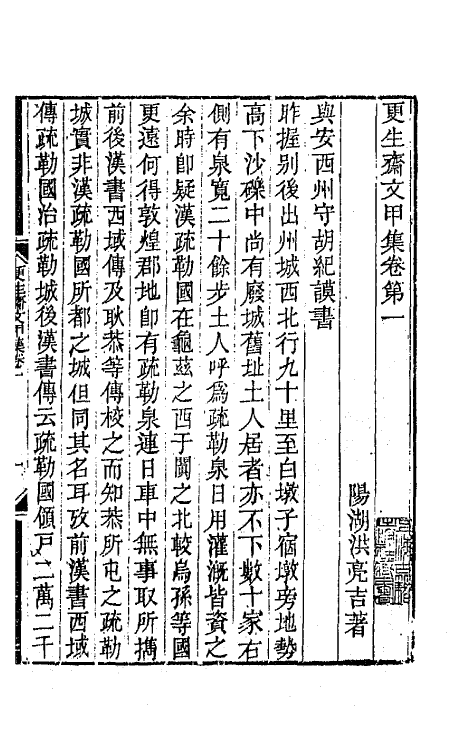 更生齋文甲集卷第一
陽湖洪亮吉著
與安西州守胡紀謨書
昨握别後出州城西北行九十里至白墩子宿墩旁地勢
高下沙礫中尚有廢城舊址土人居者亦不下數十家右
側有泉寬二十餘步土人呼爲疏勒泉日用灌溉皆資之
余時卽疑漢疏勒國在龜兹之西于闐之北較烏孫等國
更遠何得敦煌郡地卽有疏勒泉連日車中無事取所攜
前後漢書西域傳及耿恭等傳校之而知恭所屯之疏勒
城實非漢疏勒國所都之城但同其名耳攷前漢書西域
傳疏勒國治疏勒城後漢書傳云疏勒國領戸二萬二千
更生齋文甲集卷一
一